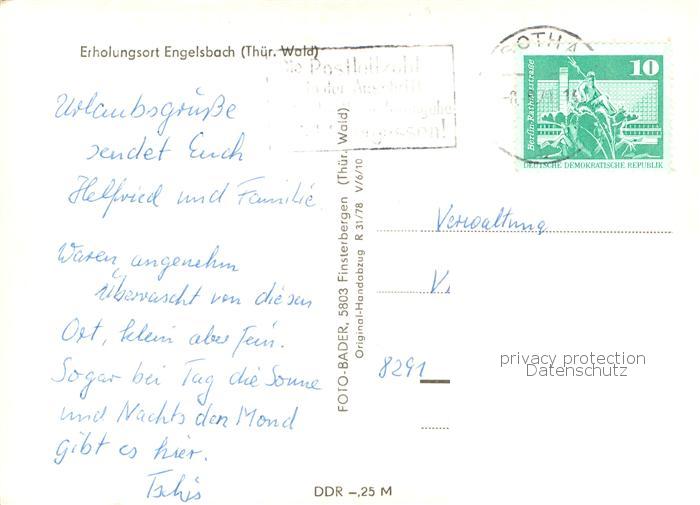 Erholungsort Engelsbach (Thür. Wald)
Die Postleitzahl
in der Anschrift
vergessen!
GOTHA
10
Berlin-Rathausstraße
DEUTSCHE DEMOKRATISCHE REPUBLIK
Urlaubsgrüße
sendet Euch
Helfried und Familie
Waren angenehm
überrascht von diesen
Ort, klein aber fein.
Sogar bei Tag die Sonne
und Nachts den Mond
gibt es hier.
Tschüs
FOTO-BADER, 5803 Finsterbergen (Thür. Wald)
Original-Handabzug R 31/78 V/6/10
Verwaltung
V.
8291
privacy protection
Datenschutz
DDR -,25 M